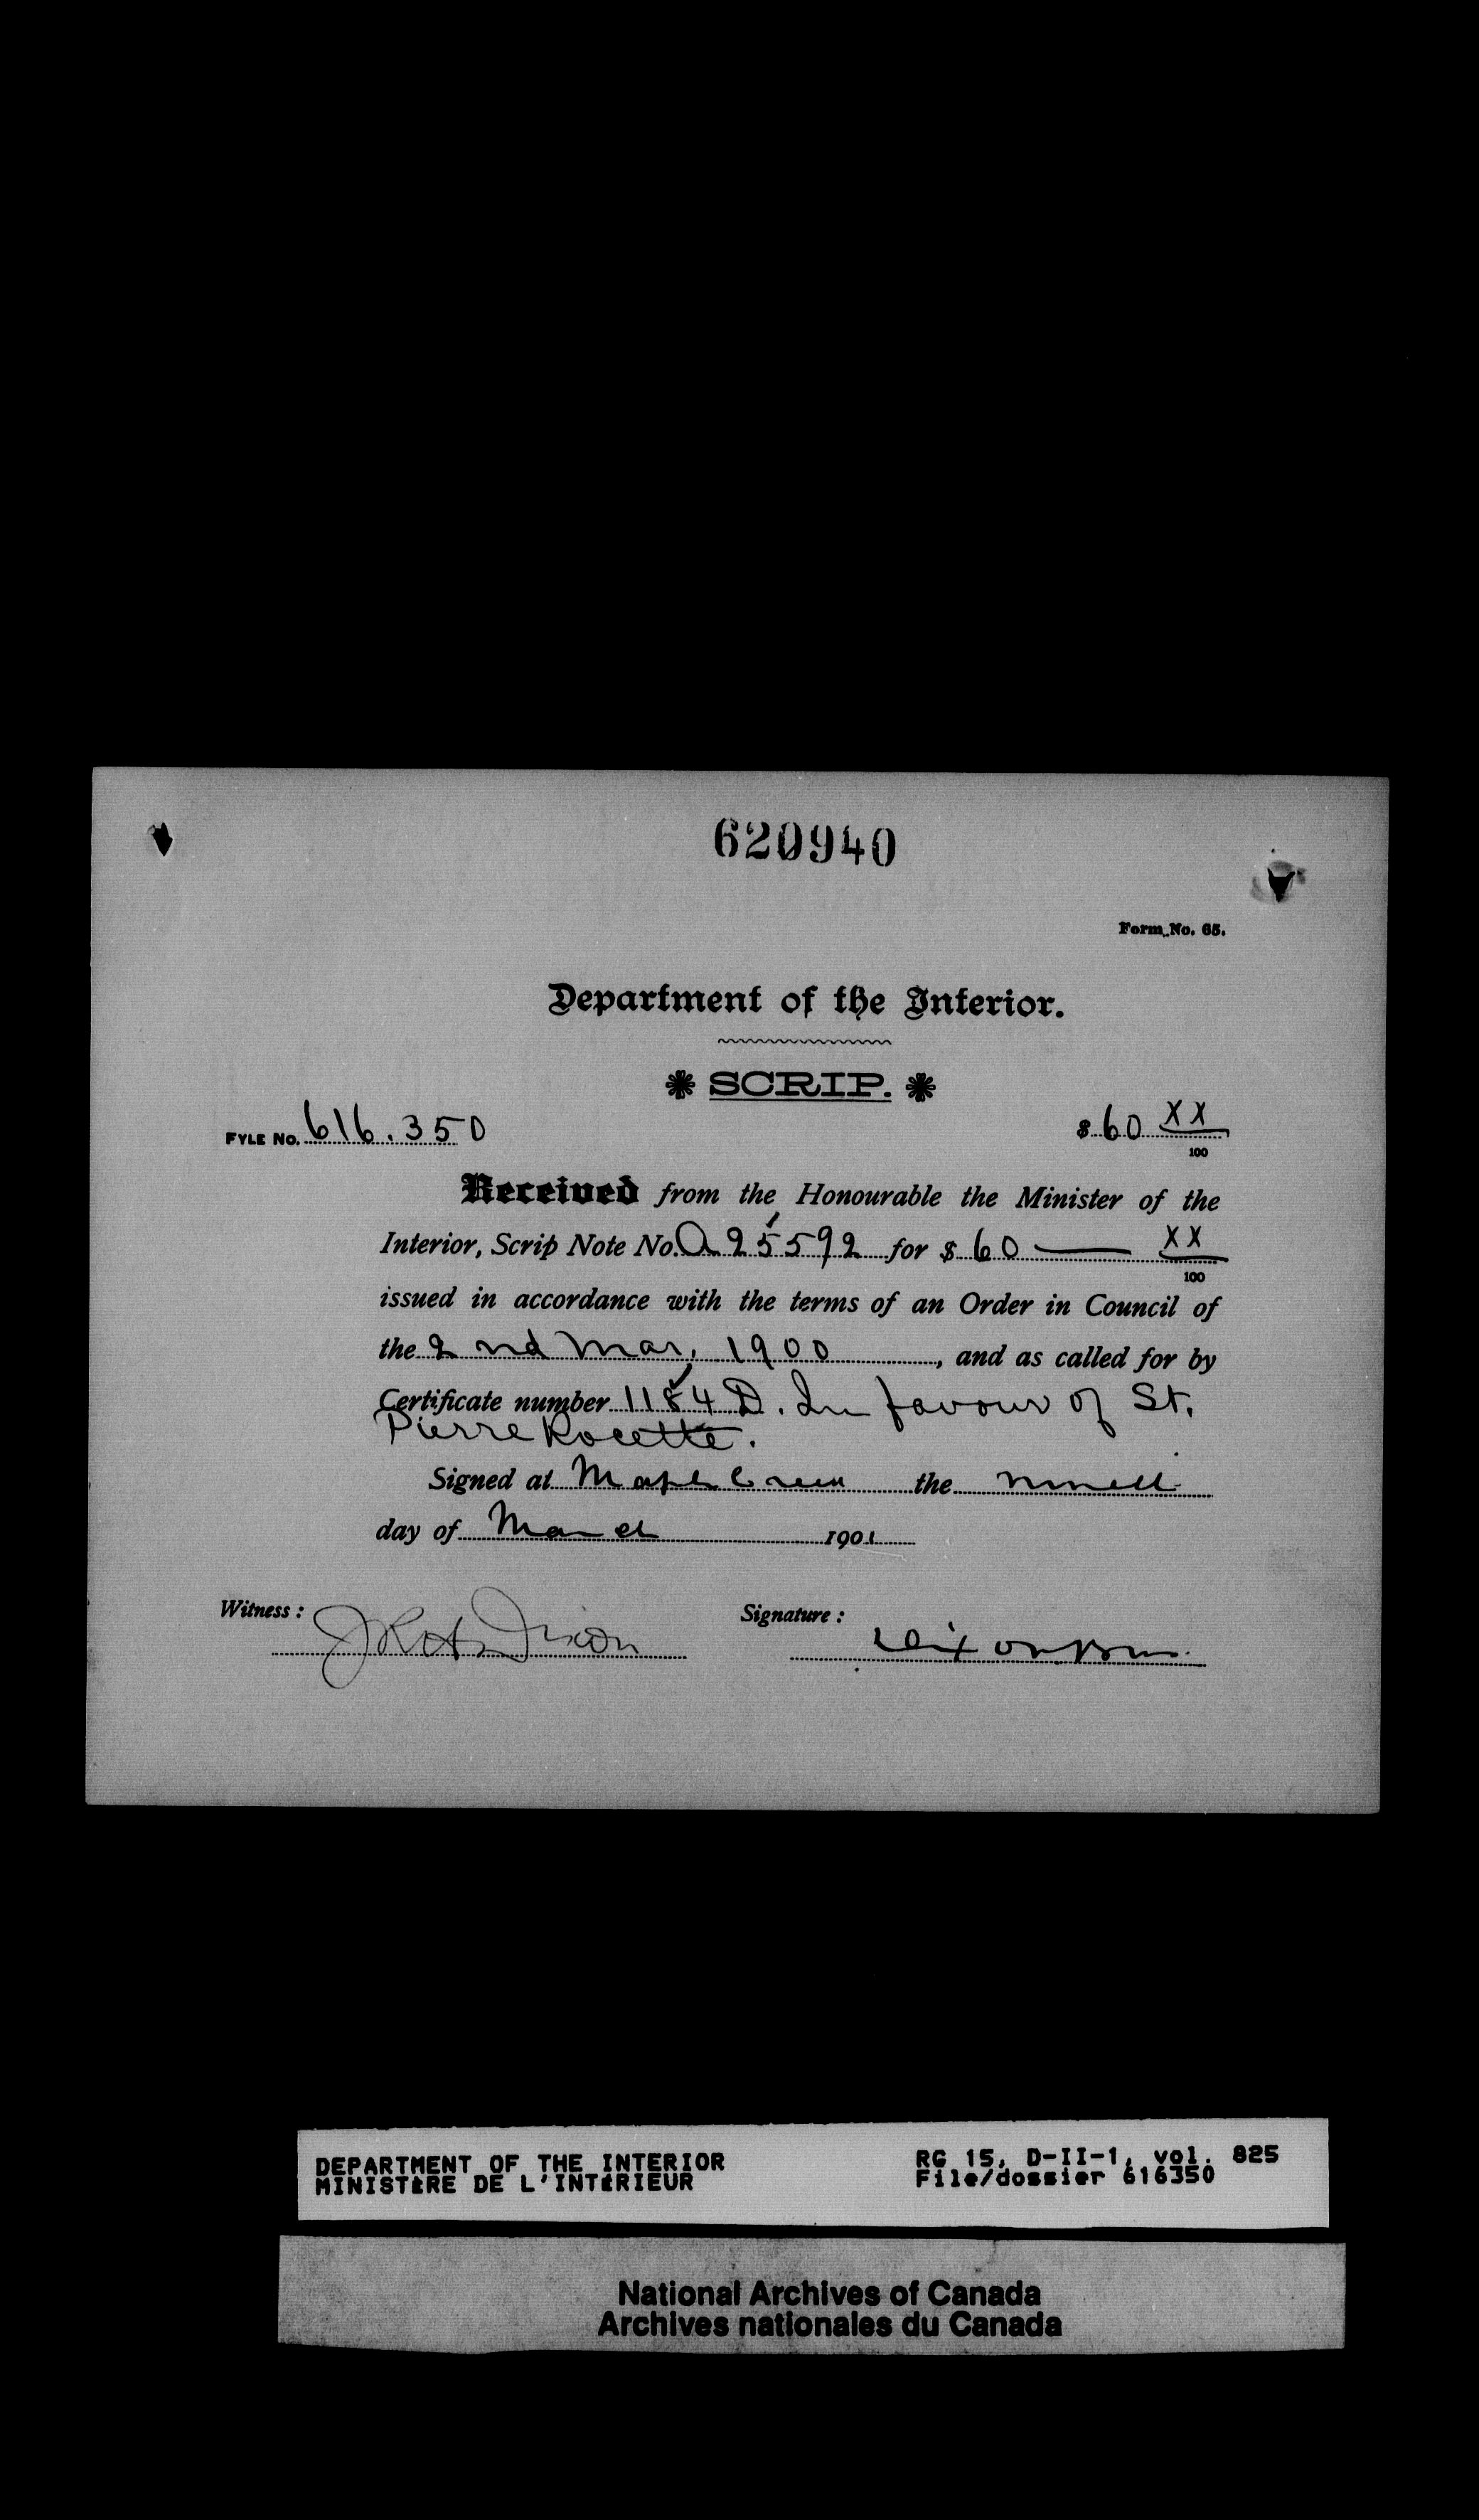 620940
Form No. 65.
Department of the Interior.
SCRIP.
FYLE No. 616.350 $ 60 XX/100
Received from the Honourable the Minister of the
Interior, Scrip Note No. A 25592 for $ 60 — XX/100
issued in accordance with the terms of an Order in Council of
the 2nd Mar, 1900, and as called for by
Certificate number 1184 D. In favour of St.
Pierre Rocette.
Signed at Maple Creek the
day of March 1901
Witness: Signature:
Dixon Bros.
DEPARTMENT OF THE INTERIOR RG 15, D-II-1, vol. 825
MINISTÈRE DE L'INTÉRIEUR File/dossier 616350
National Archives of Canada
Archives nationales du Canada